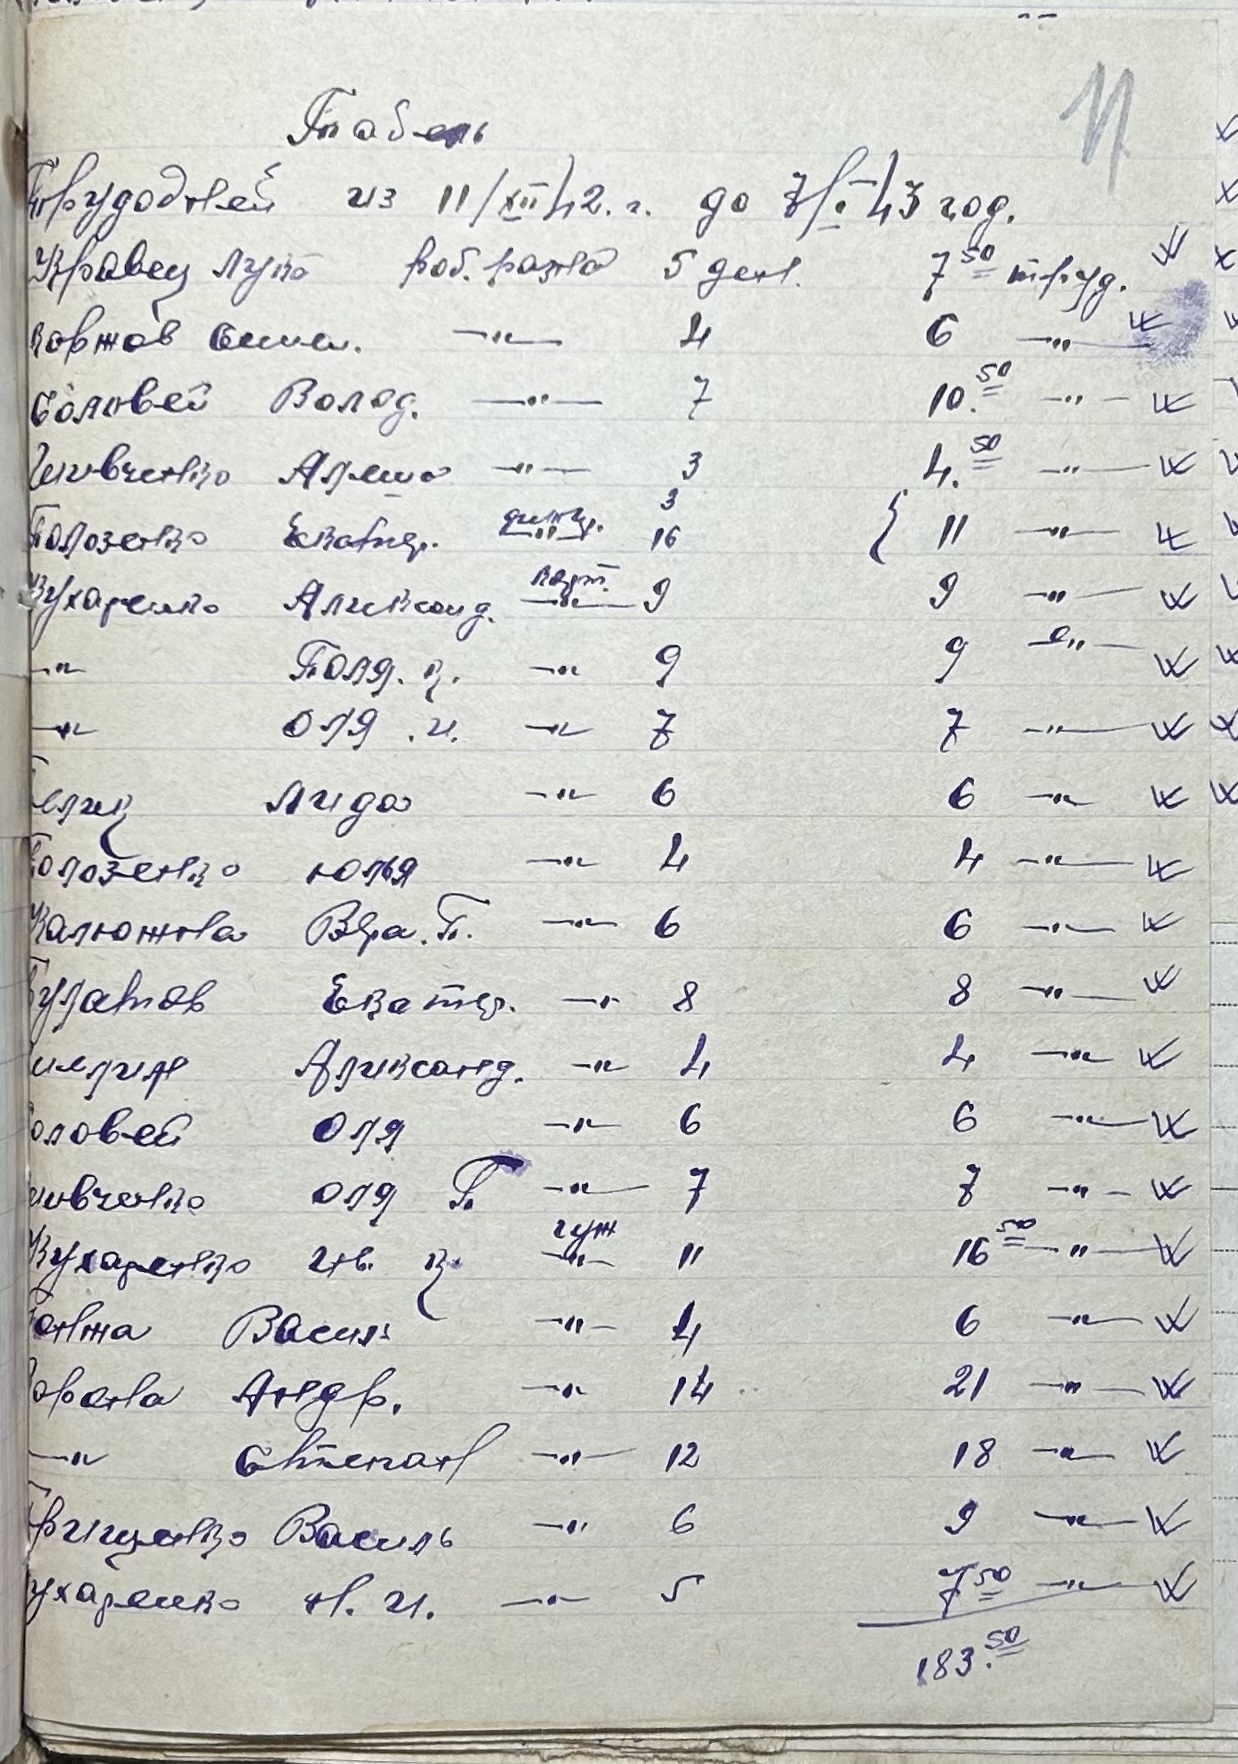 11
Табель
Трудодней из 11/XII 42. г. до 7/I 43 год.
Кравец Лука роб. разна 5 ден. 7 50 труд.
Коржов Сим. —"— 4 6 —"—
Соловей Волод. —"— 7 10. 50 —"—
Шивченко Алеша —"— 3 4. 50 —"—
3
Полозенко Екатер. —"— 16 11 —"—
Кухаренко Александ. —"— 9 9 —"—
—"— Поля. К. —"— 9 9 —"—
—"— Оля .И. —"— 7 7 —"—
Лида —"— 6 6 —"—
Полозенко Юлья —"— 4 4 —"—
Калюжна Вера. П. —"— 6 6 —"—
Екатер. —"— 8 8 —"—
Александ. —"— 4 4 —"—
оловей Оля —"— 6 6 —"—
ивченко Оля П —"— 7 7 —"—
гуж
Кухаренко Ив. К. —"— 11 16 50 —"—
Василь —"— 4 6 —"—
Андр. —"— 14 21 —"—
—"— Степан —"— 12 18 —"—
Грищенко Василь —"— 6 9 —"—
ухаренко Н. И. —"— 5 7 50 —"—
183. 50